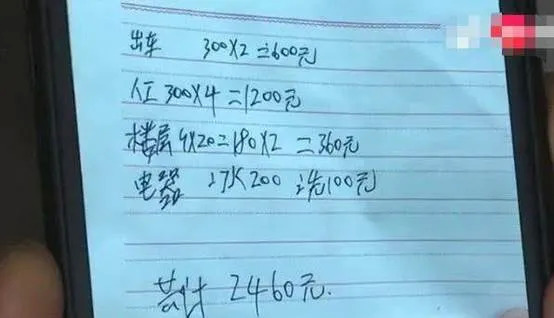 出车 300X2=600元
人工 300X4=1200元
楼层 9X20=180X2=360元
电器 冰200 洗100元
共计 2460元.